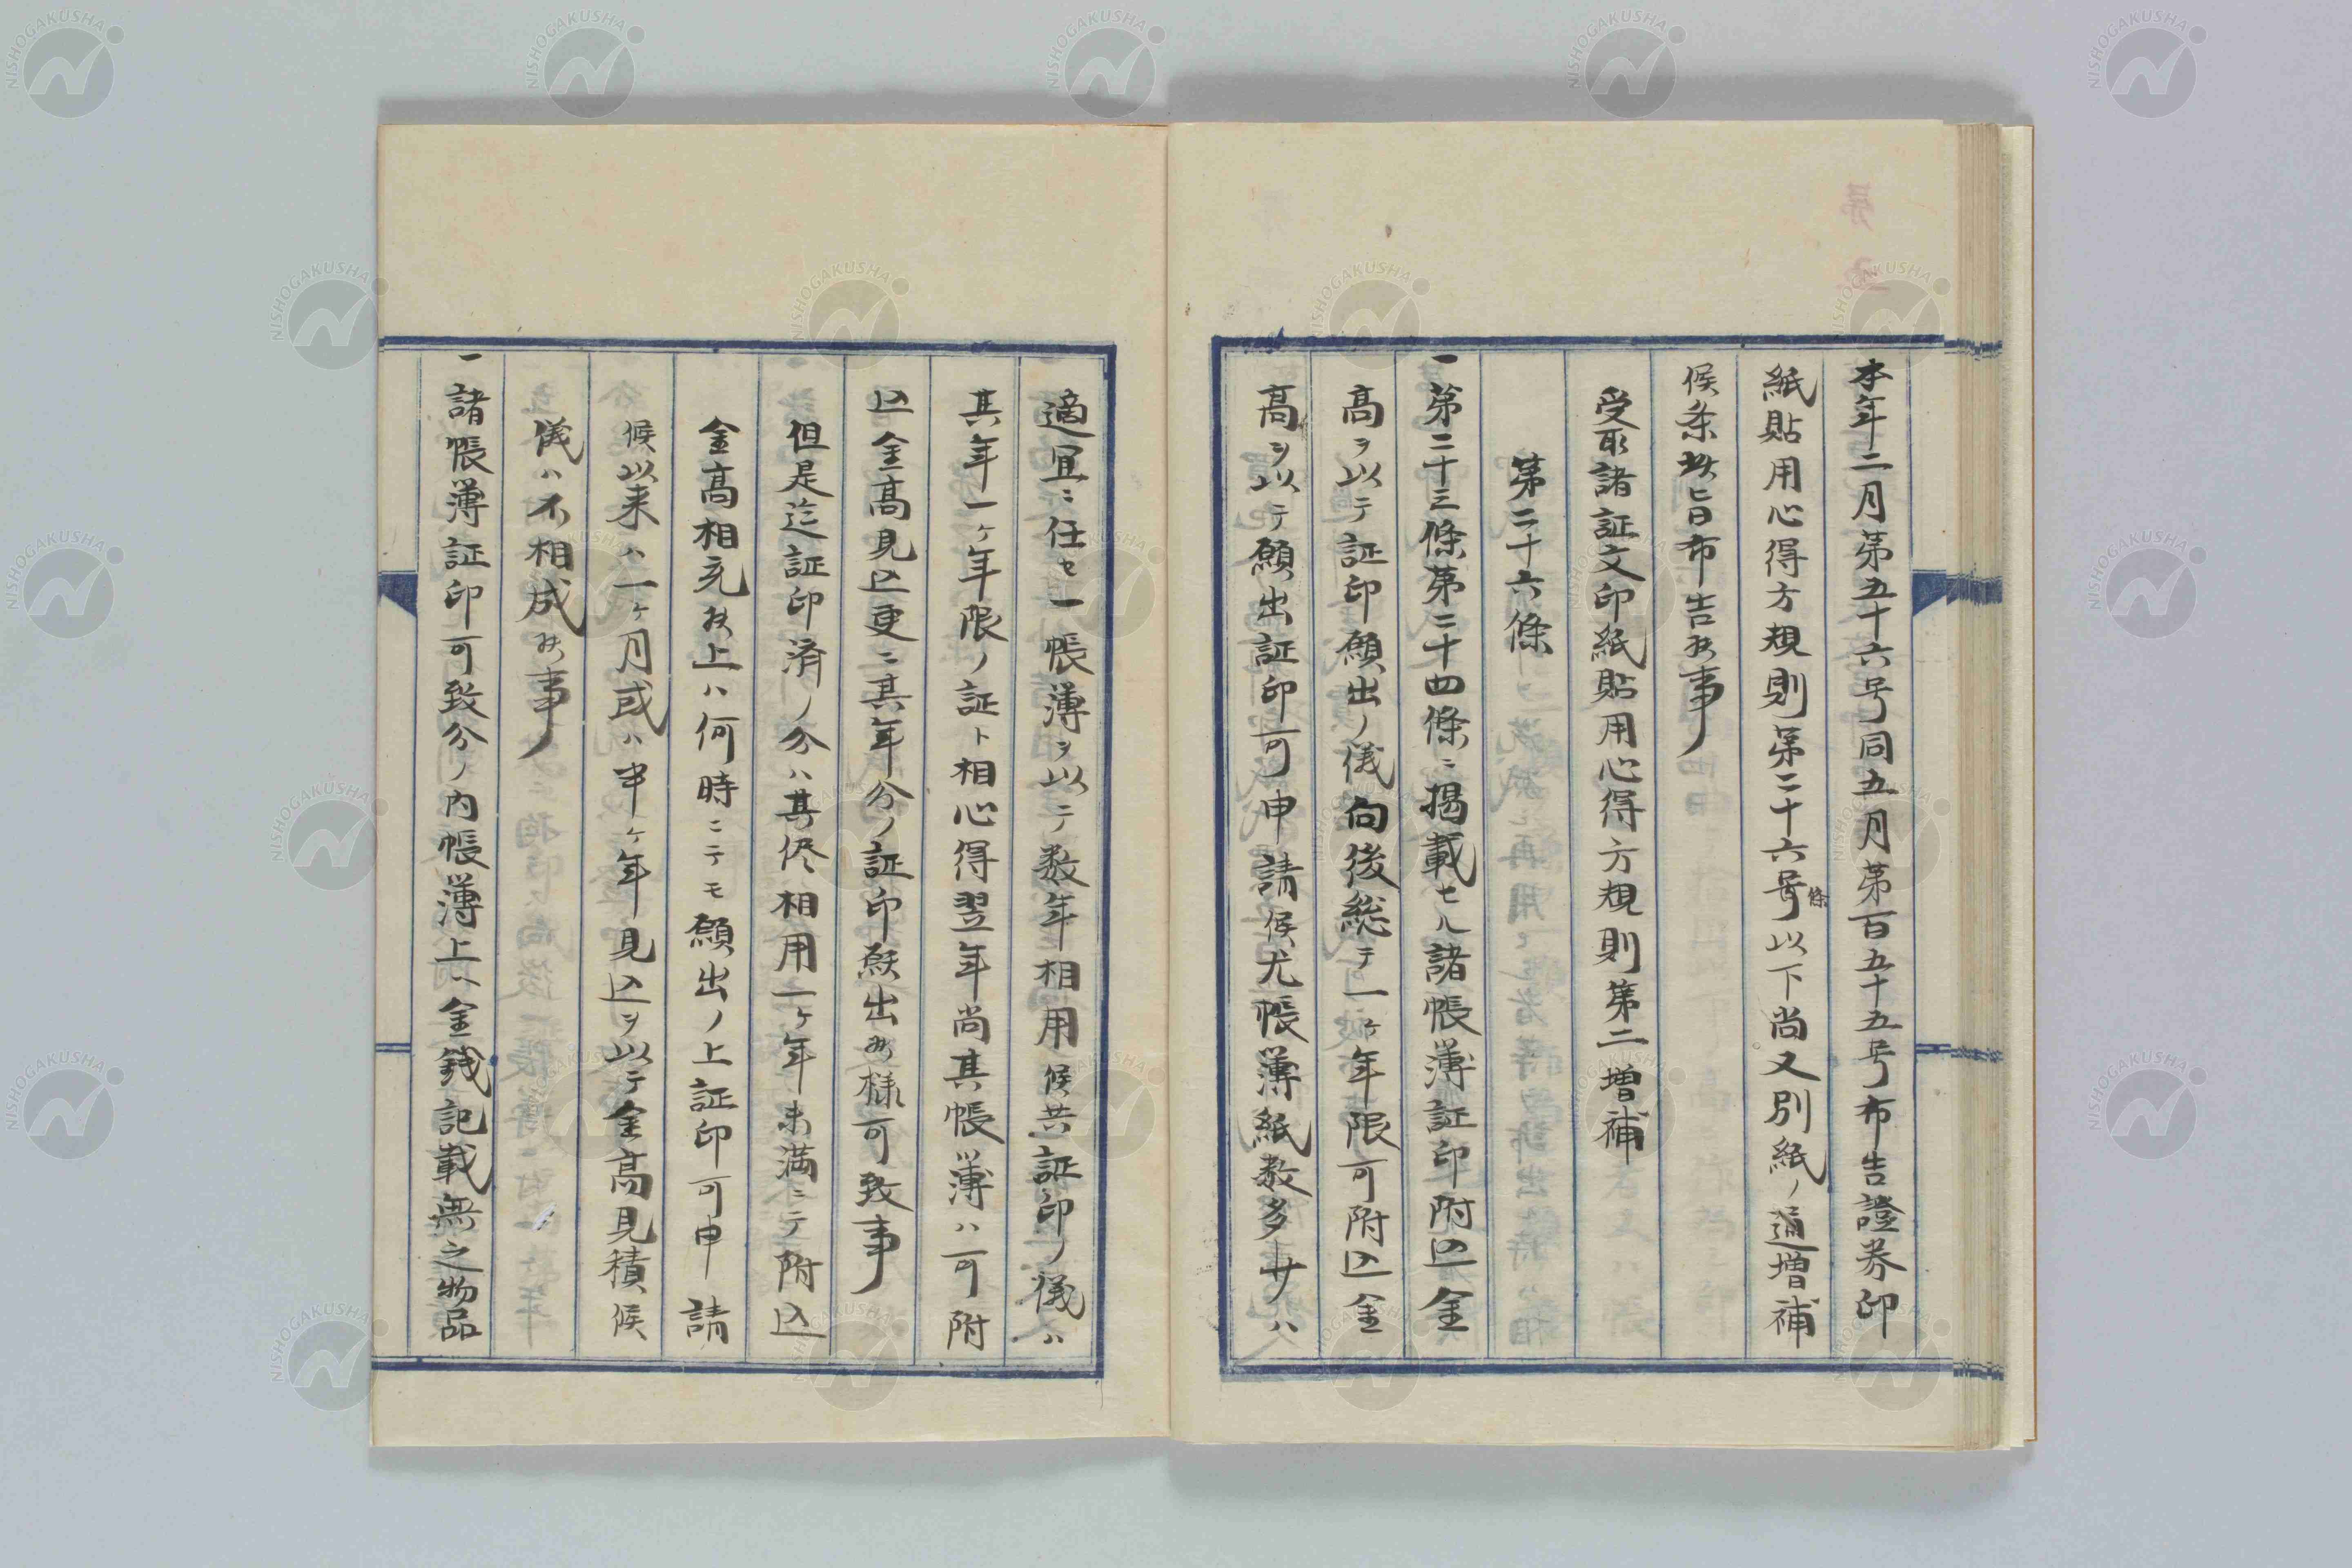 本年二月第五十六号同五月第百五十五号布告證券印
紙貼用心得方規則第二十六号條以下尚又別紙ノ通増補
候条此旨布告候事
受取諸証文印紙貼用心得方規則第二増補
第二十六條
一第二十三條第二十四條ニ掲載セル諸帳簿証印附込金
高ヲ以テ証印願出ノ儀向後総テ一ヶ年限可附込金
高ヲ以テ願出証印可申請候尤帳簿紙数多サハ
適宜ニ任セ一帳簿ヲ以テ数年相用候共証印ノ儀ハ
其年一ヶ年限ノ証ト相心得翌年尚其帳簿ハ可附
込金高見込更ニ其年分ノ証印願出候様可致事
但是迄証印済ノ分ハ其侭相用一ヶ年未満ニテ附込
金高相充候上ハ何時ニテモ願出ノ上証印可申請
候以来ハ一ヶ月或ハ半ヶ年見込ヲ以テ金高見積候
儀ハ不相成候事
一諸帳簿証印可致分ノ内帳簿上ハ金銭記載無之物品
NISHOGAKUSHA